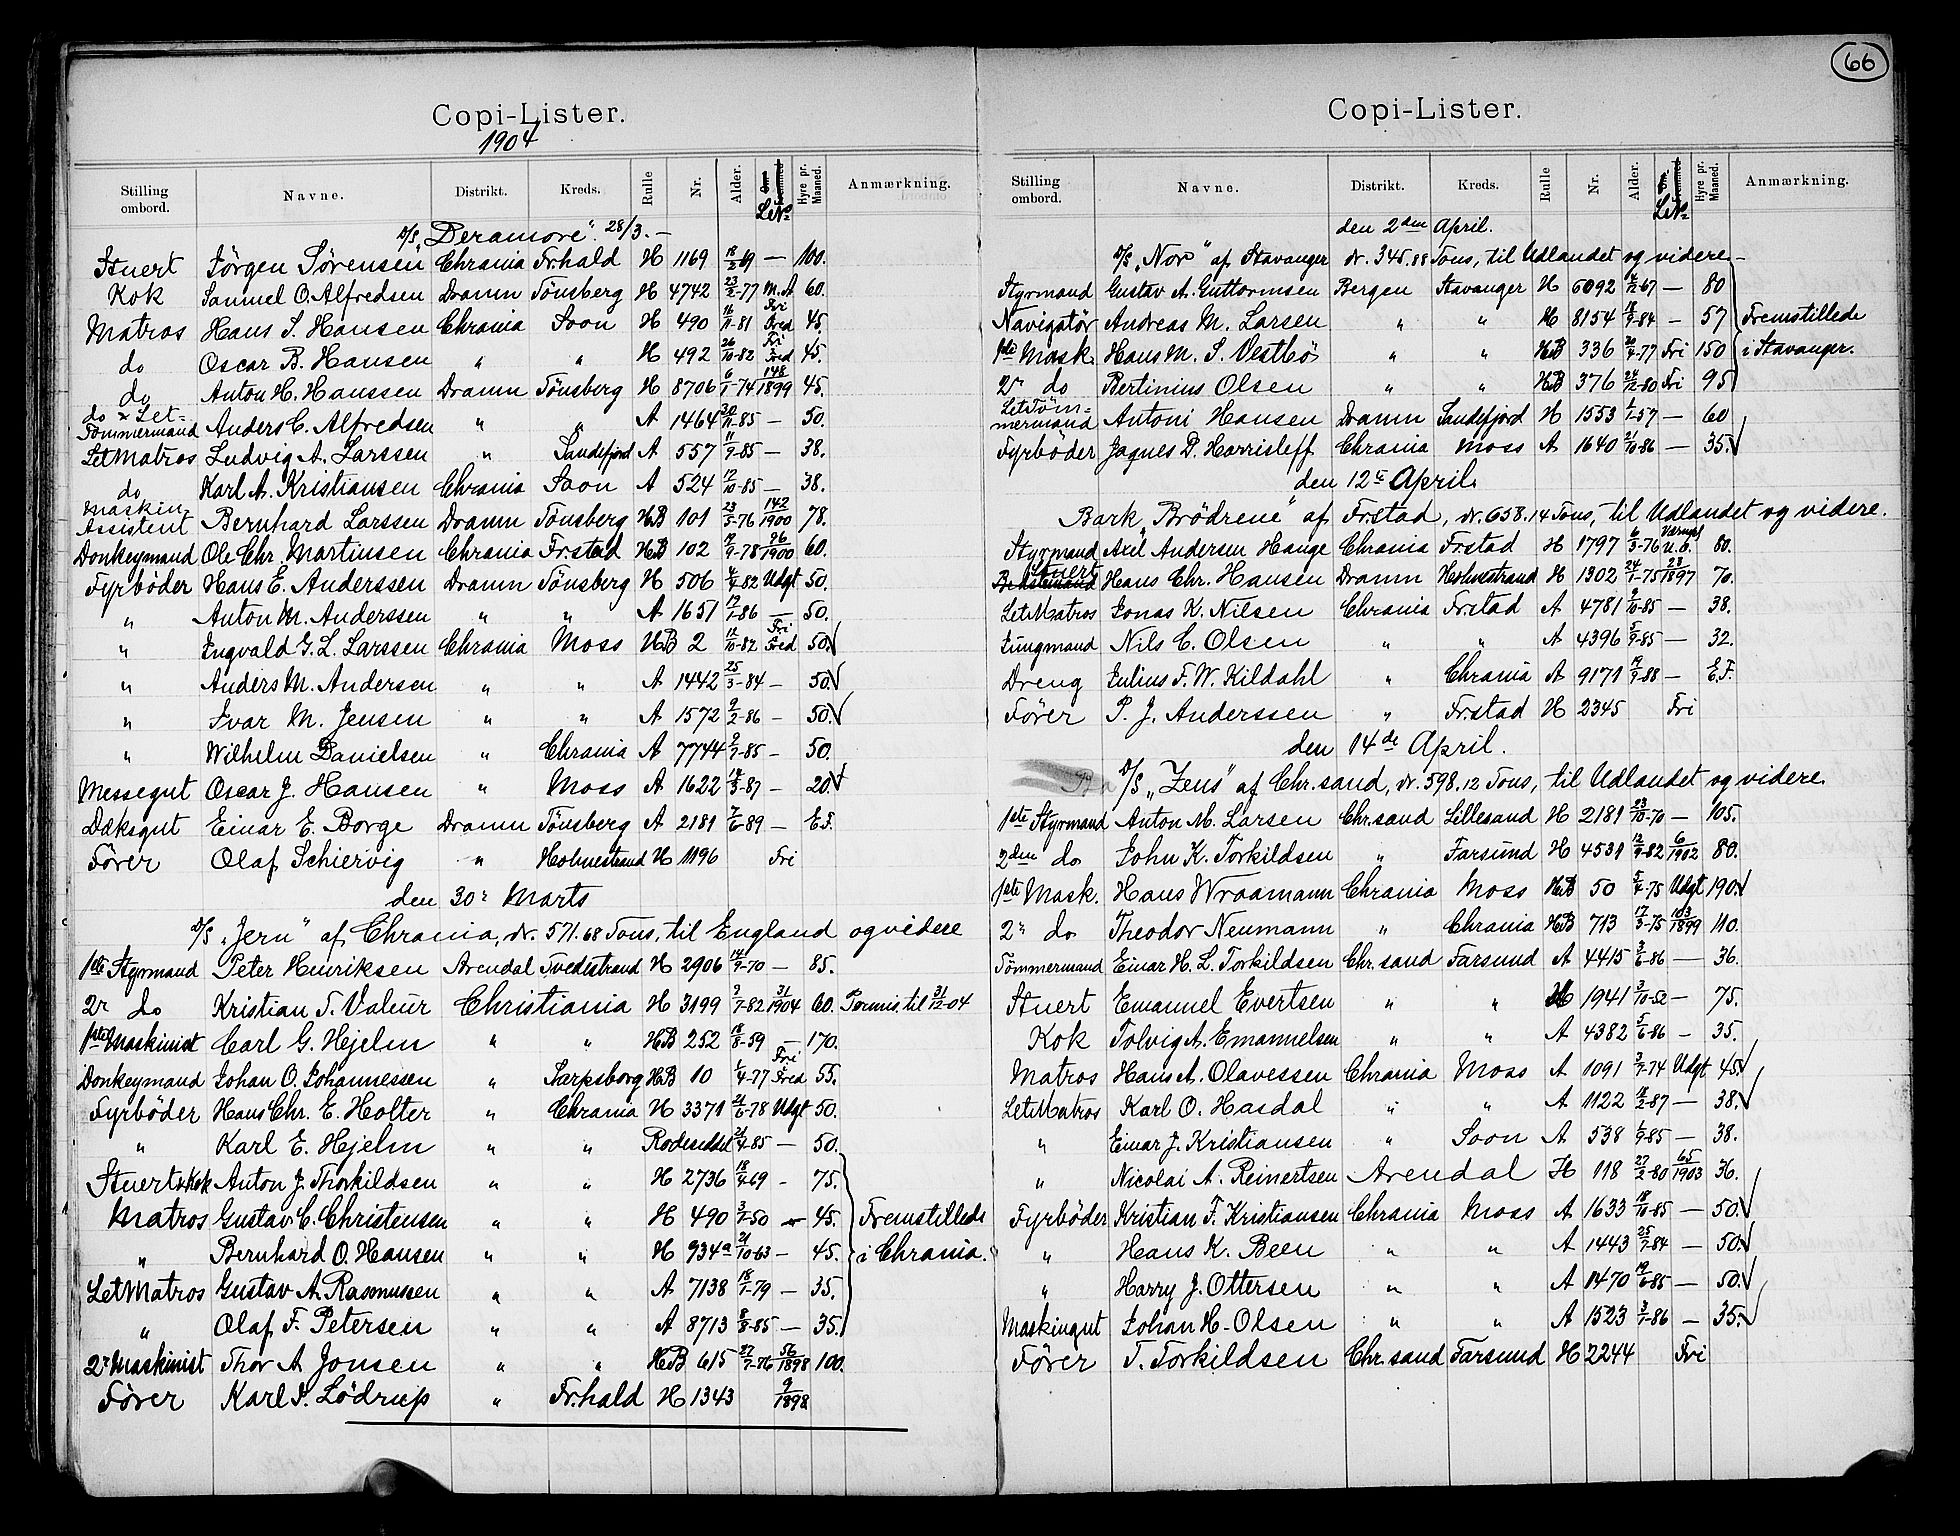 66
Copi-Lister.
1904
Stilling ombord. Navne. Distrikt. Kreds. Rulle Nr. Alder. Let№ Hyre pr. Maaned. Anmærkning.
D/S „Deramore“. 28/3. –
Stuert Jörgen Sörensen Chrania Fr.hald H 1169 18/2-69 — 100.
Kok Samuel O. Alfredsen Dramn Tönsberg H 4742 23/2-77 M.A 60.
Matros Hans S. Hansen Chrania Soon H 490 16/11-81 Fri Fred 45.
do Oscar B. Hansen " " H 492 26/10-82 Fri Fred 45.
do Anton H. Hanssen Dramn Tönsberg H 8706 6/1-74 148/1899 45.
do & Let-Tömmermand Anders C. Alfredsen " " A 1464 30/11-85 — 50.
LetMatros Ludvig A. Larssen " Sandefjord A 557 11/9-85 — 38.
do Karl A. Kristiansen Chrania Soon A 524 12/10-85 — 38.
Maskin-Assistent Bernhard Larssen Dramn Tönsberg HB 101 23/3-76 142/1900 78.
Donkeymand Ole Chr. Martinsen Chrania Fr.stad HB 102 17/9-78 96/1900 60.
Fyrböder Hans E. Anderssen Dramn Tönsberg H 506 4/9-82 Udgt 50.
" Anton M. Anderssen " " A 1651 17/1-86 — 50.
" Ingvald G. L. Larssen Chrania Moss HB 2 12/10-82 Fri Fred 50.
" Anders M. Andersen " " A 1442 25/3-84 — 50.
" Ivar M. Jensen " " A 1572 9/2-86 — 50.
" Wilhelm Danielsen " Chrania A 7744 9/7-85 — 50.
Messegut Oscar J. Hansen " Moss A 1622 18/3-87 — 20.
Dæksgut Einar E. Borge Dramn Tönsberg A 2181 7/6-89 — E.F.
Förer Olaf Schiervig " Holmestrand H 1196 Fri
den 30: Marts
D/S „Jern“ af Chrania, dr. 571.68 Tons, til England og videre
1ste Styrmand Peter Henriksen Arendal Tvedestrand H 2906 14/9-70 — 85.
2r do Kristian T. Valeur Christiania H 3199 9/7-82 31/1904 60. Permis. til 31/12-04
1ste Maskinist Carl G. Hjelm " " HB 252 18/8-59 — 170.
Donkeymand Johan O. Johannessen " Sarpsborg HB 10 1/4-77 Fri Fred 55.
Fyrböder Hans Chr. E. Holter " Chrania H 3371 21/6-78 Udgt 50.
" Karl E. Hjelm " " Rodeseddel 21/4-85 — 50.
Stuert&Kok Anton J. Thorkildsen " " H 2736 18/4-69 - 75.
Matros Gustav C. Christensen " " H 490 3/7-50 - 45. Fremstillede
" Bernhard O. Hansen " " H 934a 21/10-63 — 45. i Chrania.
LetMatros Gustav A. Rasmussen " " A 7138 18/1-79 — 35.
" Olaf F. Petersen " " A 8713 8/8-85 — 35.
2r Maskinist Thor A Jonsen " " HB 615 27/7-76 56/1898 100.
Förer Karl P. Lödrup " Fr.hald H 1343 9/1898
Copi-Lister.
Stilling ombord. Navne. Distrikt. Kreds. Rulle Nr. Alder. Let№ Hyre pr. Maaned. Anmærkning.
den 2den April.
D/S „Nor“ af Stavanger dr. 345.88 Tons, til Udlandet og videre –
Styrmand Gustav A. Guttormsen Bergen Stavanger H 6092 14/12-67 — 80
Navigatör Andreas M. Larsen " " H 8154 18/9-84 — 57 Fremstillede
1ste Mask. Hans M. S. Vestbö " " HB 336 20/4-77 Fri 150 i Stavanger.
2r do Bertinius Olsen " " HB 376 24/12-80 Fri 95
LetTöm-mermand Antoni Hansen Dramn Sandefjord H 1553 1/1-57 — 60
Fyrböder Jagnes P. Harrisleff Chrania Moss A 1640 21/10-86 — 35.
den 12te April.
Bark „Brödrene“ af Fr.stad, dr. 658.14 Tons, til Udlandet og videre.
Styrmand Axil Andersen Hauge Chrania Fr.stad H 1797 6/3-76 u.b. 80.
Stuert Hans Chr. Hansen Dramn Holmestrand H 1302 24/1-75 23/1897 70.
LetMatros Jonas K. Nilsen Chrania Fr.stad A 4781 9/10-85 — 38.
Jungmand Nils C. Olsen " " A 4396 5/9-85 — 32.
Dreng Julius F. W. Kildahl " Chrania A 9171 19/9-88 — E.F.
Förer P. J. Anderssen " Fr.stad H 2345 Fri
den 14de April.
D/S „Zeus“ af Chr.sand, dr. 598.12 Tons, til Udlandet og videre
1ste Styrmand Anton M. Larsen Chr.sand Lillesand H 2181 23/10-70 — 105.
2den do John K. Torkildsen " Farsund H 4531 12/9-82 6/1902 80.
1ste Mask. Hans Wraamann Chrania Moss HB 50 5/4-75 Udgt 190.
2: do Theodor Neumann " Chrania HB 713 17/3-75 103/1899 110.
Tömmermand Einar H. L. Torkildsen Chr.sand Farsund A 4415 3/6-86 — 36.
Stuert Emanuel Evertsen " " H 1941 3/10-52 — 75.
Kok Tolvig A. Emanuelsen " " A 4382 5/6-86 - 35.
Matros Hans A. Olavessen Chrania Moss A 1091 3/7-74 Udgt 45
LetMatros Karl O. Hasdal " " A 1122 18/2-87 — 38.
" Einar J. Kristiansen " Soon A 538 1/9-85 — 38.
" Nicolai A. Reinertsen Arendal H 118 27/2-80 65/1903 36.
Fyrböder Kristian F. Kristiansen Chrania Moss A 1633 18/10-85 — 50.
" Hans K. Been " " A 1443 25/7-84 — 50.
" Harry J. Ottersen " " A 1470 19/6-85 — 50.
Maskingut Johan H. Olsen " " A 1523 3/7-86 — 35.
Förer T. Torkildsen Chr.sand Farsund H 2244 Fri